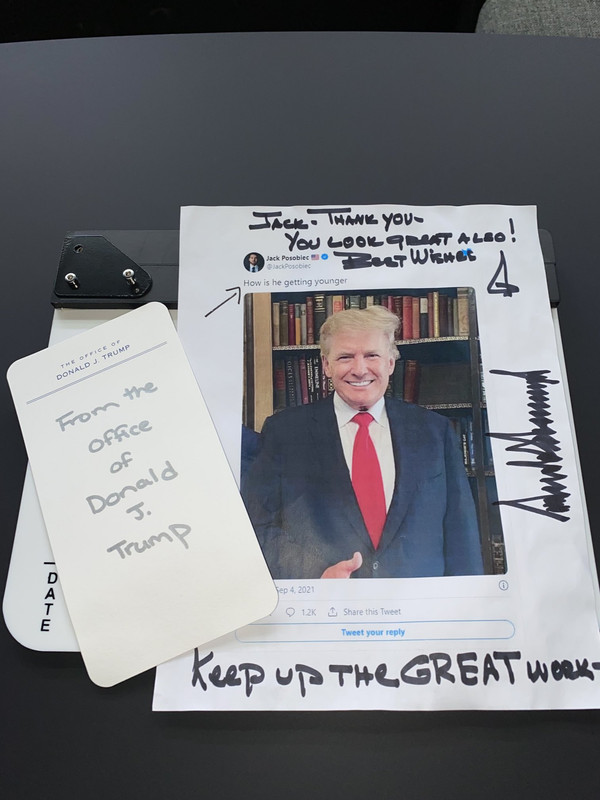 JACK - THANK YOU -
YOU LOOK GREAT ALSO!
BEST WISHES
Jack Posobiec
@JackPosobiec
How is he getting younger
THE OFFICE OF
DONALD J. TRUMP
From the
office
of
Donald
J.
Trump
DATE
Sep 4, 2021
1.2K Share this Tweet
Tweet your reply
KEEP UP THE GREAT WORK-